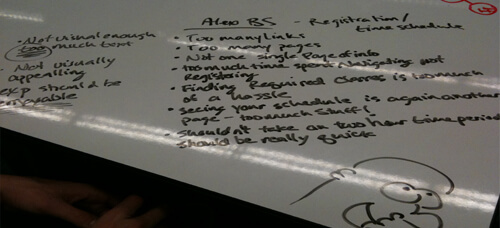 - Not visual enough
too much text
- Not visually
appealling
exp should be
enjoyable
Alex BS - Registration/
time schedule
• Too many links
• Too many pages
• Not one single Page of info
• too much time spent Navigating not
Registering
• Finding Required Classes is too much
of a hassle
• seeing your schedule is again another
page - too much stuff!
• Shouldn't take an two hour time period
should be really quick